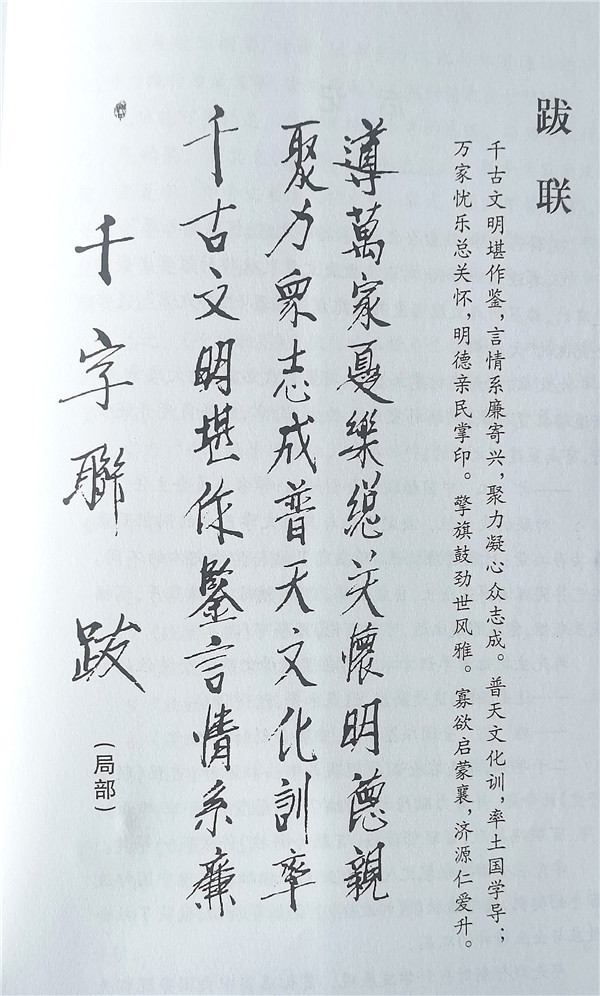 跋联
千古文明堪作鉴，言情系廉寄兴，聚力凝心众志成。普天文化训，率土国学导；
万家忧乐总关怀，明德亲民掌印。擎旗鼓劲世风雅。寡欲启蒙襄，济源仁爱升。
千字聯跋
（局部）
千古文明堪作鑒言情系廉
聚力衆志成普天文化訓率
導萬家憂樂總关懷明德親